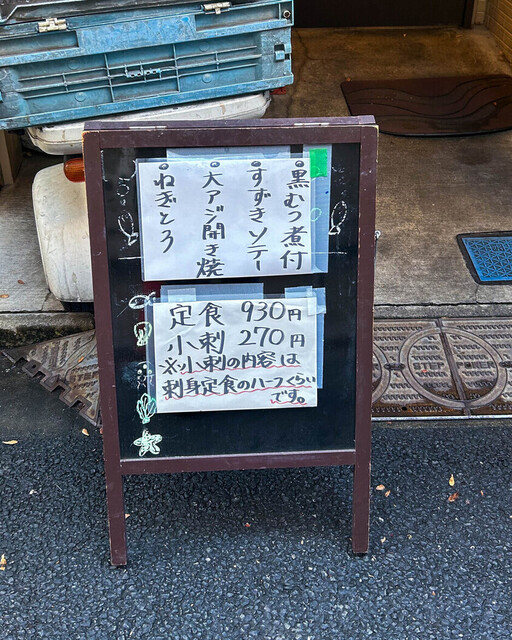 ・黒むつ煮付
・すずきソテー
・大アジ開き焼
・ねぎとろ
定食 930円
小刺 270円
※小刺の内容は
刺身定食のハーフくらい
です。